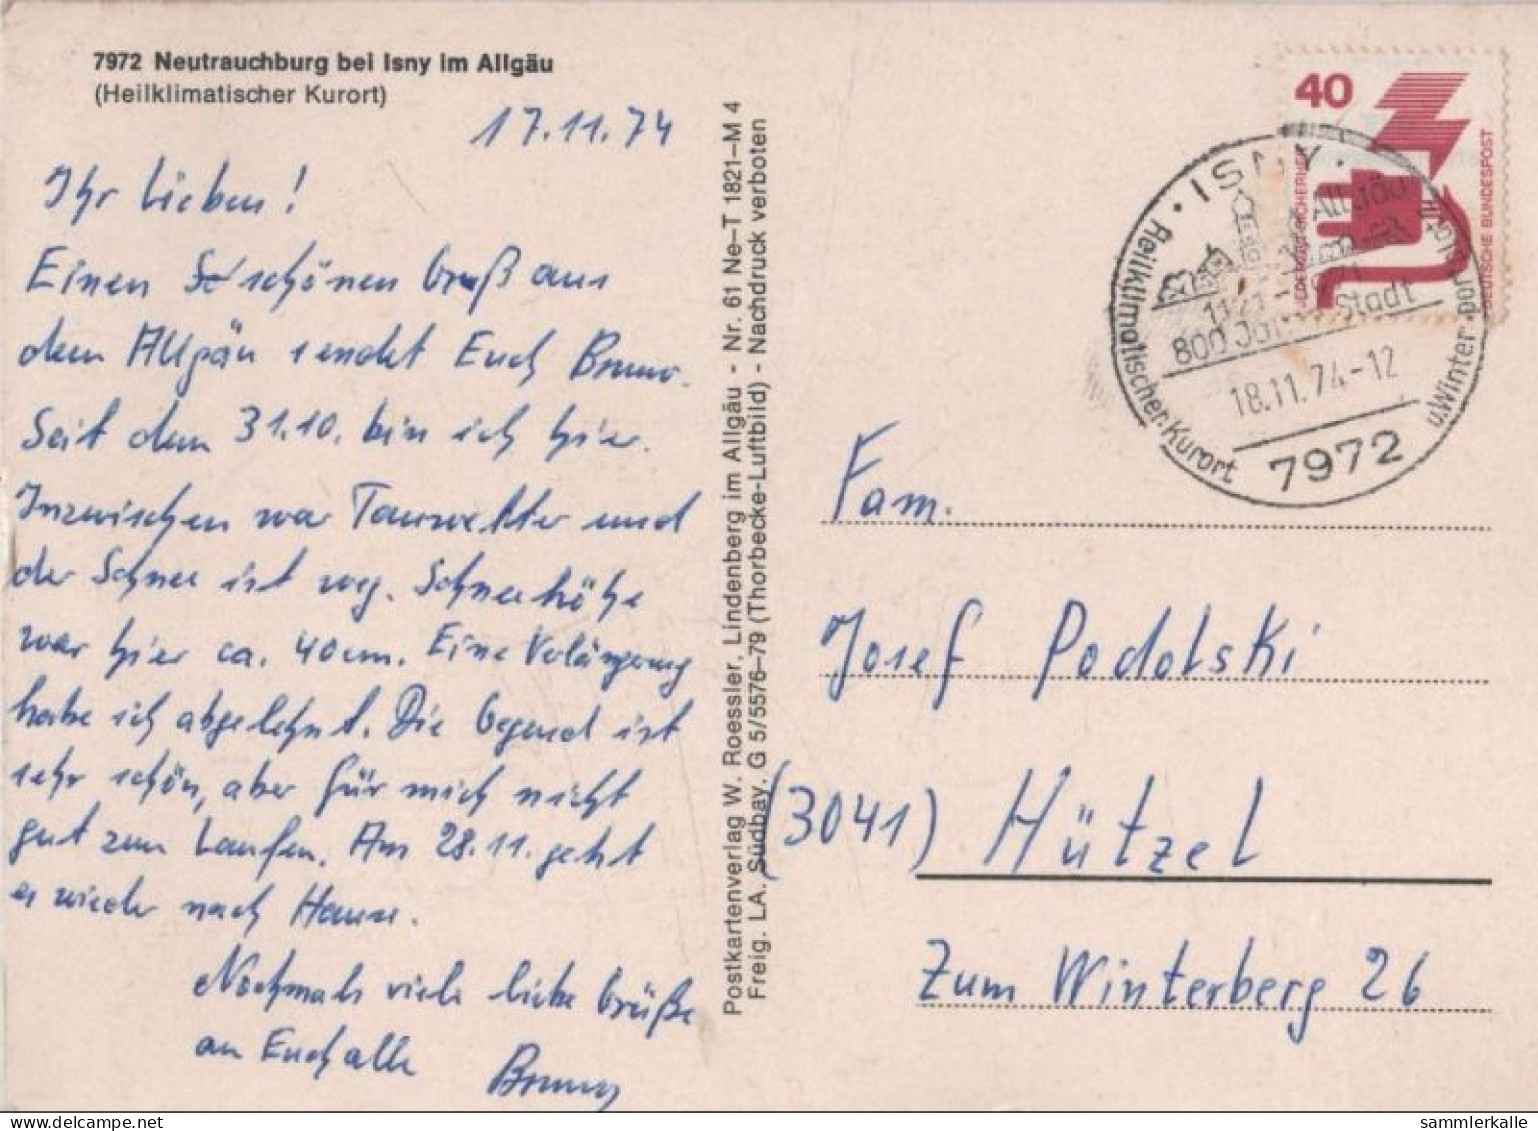 7972 Neutrauchburg bei Isny im Allgäu
(Heilklimatischer Kurort)
17.11.74
Ihr Lieben!
Einen schönen Gruß aus
dem Allgäu sendet Euch Bruno.
Seit dem 31.10. bin ich hier.
Inzwischen war Tauwetter und
der Schnee ist weg. Schneehöhe
war hier ca. 40cm. Eine Verlängerung
habe ich abgelehnt. Die Gegend ist
sehr schön, aber für mich nicht
gut zum Laufen. Am 28.11. geht
es wieder nach Hause.
Nochmals viele liebe Grüße
an Euch alle
Bruno
Postkartenverlag W. Roessler, Lindenberg im Allgäu - Nr. 61 Ne-T 1821-M 4
Freig. LA. Südbay. G 5/5576-79 (Thorbecke-Luftbild) - Nachdruck verboten
40
DEUTSCHE BUNDESPOST
· ISNY ·
Allgäu
800 Jahre Stadt
18.11.74-12
7972
Heilklimatischer Kurort
u. Winter
Fam.
Josef Podolski
(3041) Hützel
Zum Winterberg 26
sammlerkalle